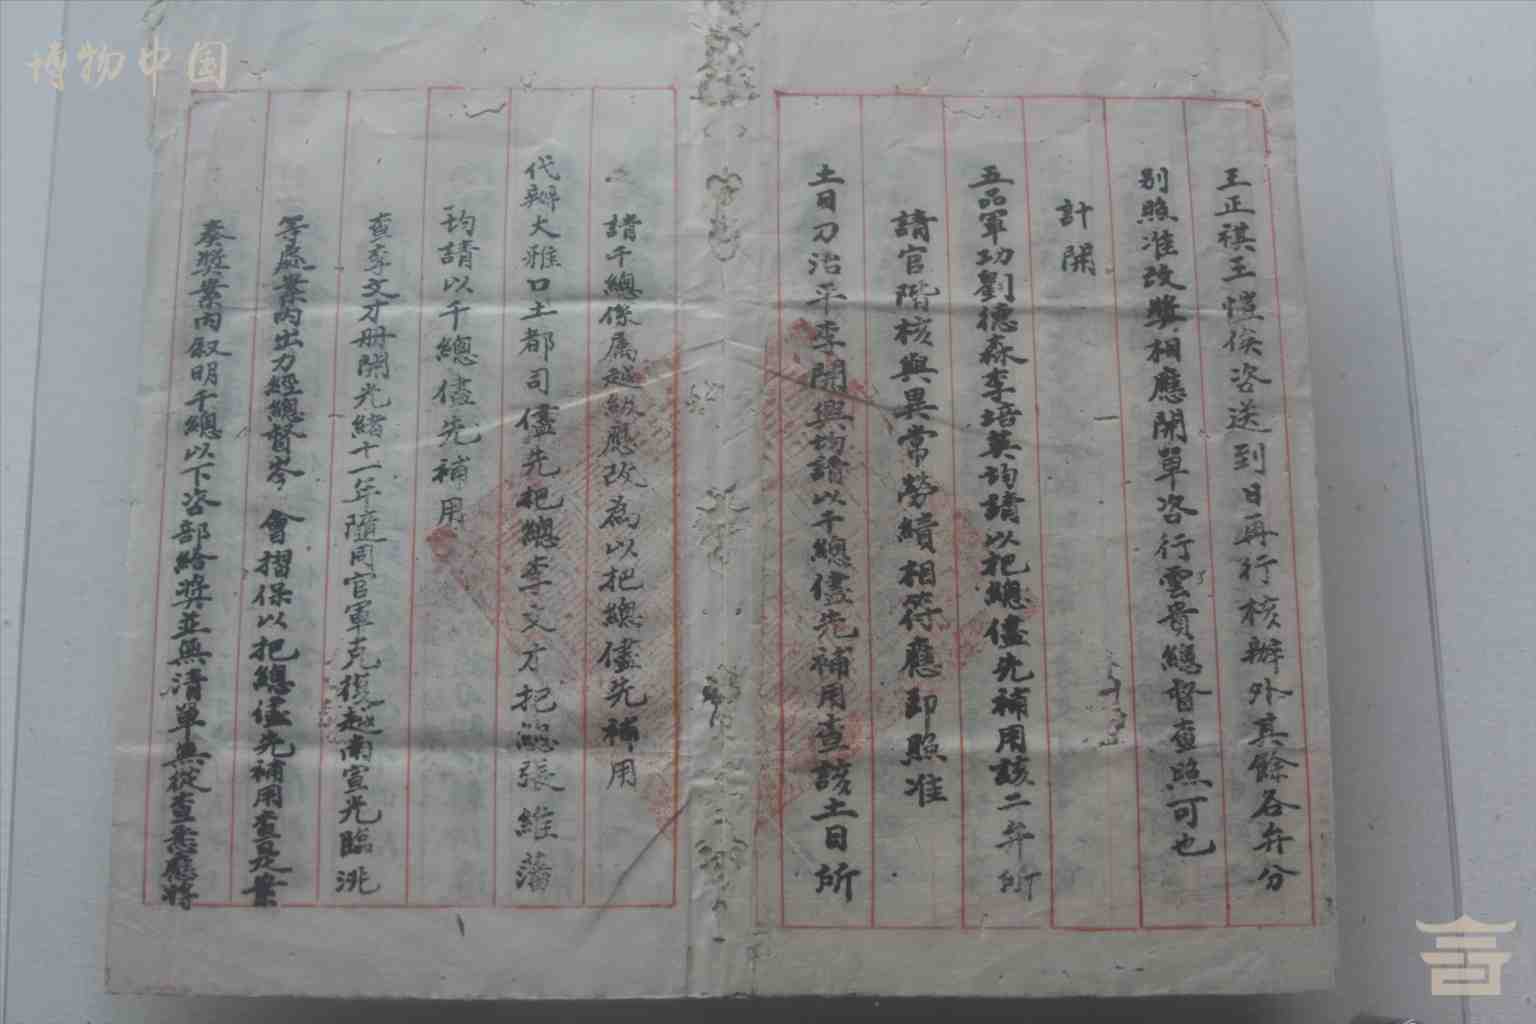 博物中国
王正祺王愷俟咨送到日再行核辦外其餘各弁分
別照准改獎相應開單咨行雲貴總督查照可也
計開
五品軍功劉德森李培英均請以把總儘先補用該二弁所
請官階核與異常勞績相符應即照准
土目刀治平李開興均請以千總儘先補用查該土目所
請千總係屬越級應改為以把總儘先補用
代辦大雅口土都司儘先把總李文才把總張維藩
均請以千總儘先補用
查李文才冊開光緒十一年隨同官軍克復越南宣光臨洮
等處案內出力經總督岑 會摺保以把總儘先補用查是案
奏獎案內叙明千總以下咨部給獎並無清單無從查悉應將